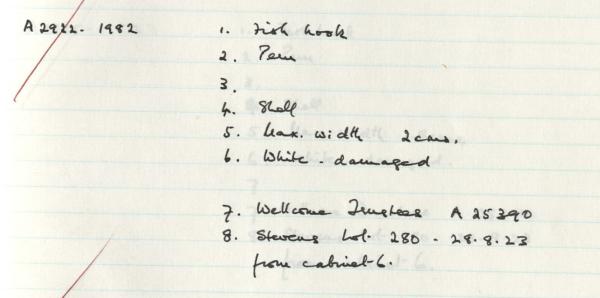 A2922. 1982
1. Fish hook
2. Peru
3.
4. Shell
5. Max. width 2cms.
6. White - damaged
7. Wellcome Trustees A 25390
8. Stevens Lot. 280 - 28.8.23
from cabinet 6.